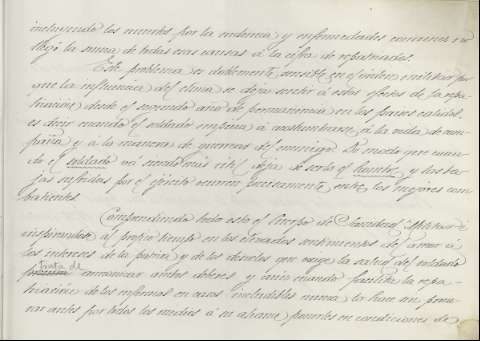 incluyendo los muertos por la endemia y enfermedades comunes no
llegó la suma de todas esas causas á la cifra de repatriados.
Este problema es doblemente sensible en el orden militar por
que la influencia del clima se deja sentir á estos efectos de la repa-
triación, desde el segundo año de permanencia en los paises cálidos,
es decir cuando el soldado empieza á acostumbrarse á la vida de cam-
paña y á la manera de guerrear del enemigo. De modo que cuan-
do el soldado va siendo más útil deja de serlo el hombre y las ba-
jas sufridas por el ejército ocurren precisamente entre los mejores com-
batientes.
Comprendiendo todo esto el Cuerpo de Sanidad Militar é
inspirandose al propio tiempo en los elevados sentimientos del amor á
los intereses de la patria y de los desvelos que exige la salud del soldado
trata de armonizar ambos deberes y aun cuando facilita la repa-
triación de los enfermos en casos ineludibles nunca lo hace sin procu-
rar antes por todos los medios á su alcance ponerlos en condiciones de